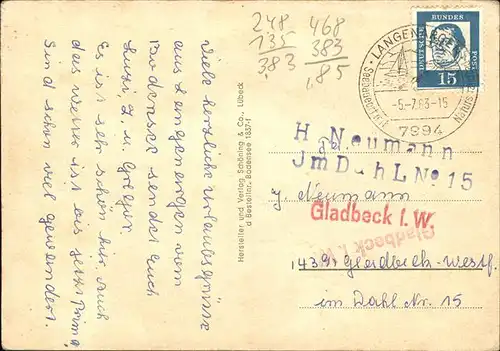 Viele herzliche Urlaubsgrüsse
aus Langenargen vom
Bodensee sendet Euch
Luzi, J. u. Gregor.
Es ist sehr schön hier. Auch
das Wetter ist bis jetzt Prima,
sind schon viel gewandert.
Hersteller und Verlag Schöning & Co., Lübeck
d Bestellnr. Bodensee 1837-f
248
135
3,83
468
383
1,85
DEUTSCHE BUNDESPOST
15
LANGENARGEN
-5-7.63-15
7994
H Neumann
Jm Dahl No 15
J. Neumann
Gladbeck i. W.
Gladbeck i. W.
4390 Gladbeck-Westf.
im Dahl Nr. 15